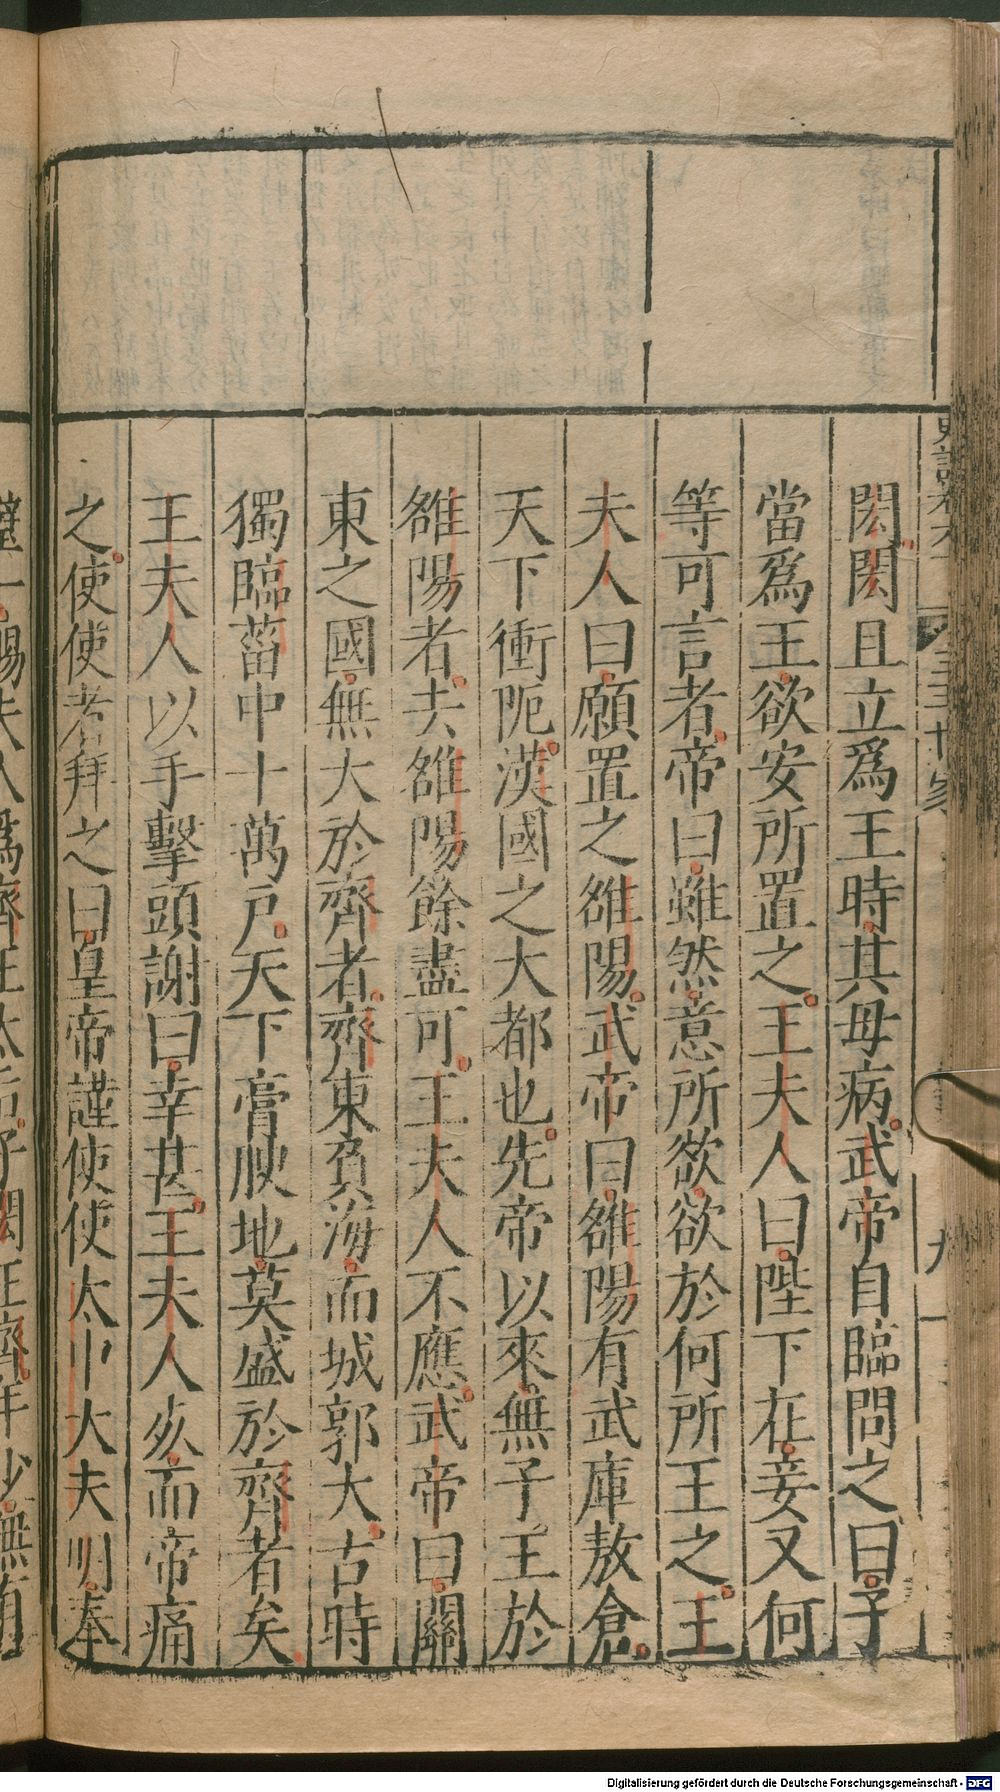 閎閎且立爲王時其母病武帝自臨問之曰子
當爲王欲安所置之王夫人曰陛下在妾又何
等可言者帝曰雖然意所欲欲於何所王之王
夫人曰願置之雒陽武帝曰雒陽有武庫敖倉
天下衝阨漢國之大都也先帝以來無子王於
雒陽者去雒陽餘盡可王夫人不應武帝曰關
東之國無大於齊者齊東負海而城郭大古時
獨臨菑中十萬戶天下膏腴地莫盛於齊者矣
王夫人以手擊頭謝曰幸甚王夫人死而帝痛
之使使者拜之曰皇帝謹使使太中大夫明奉
一賜夫人爲齊王太后子閎王齊年少無有
九
Digitalisierung gefördert durch die Deutsche Forschungsgemeinschaft - DFG